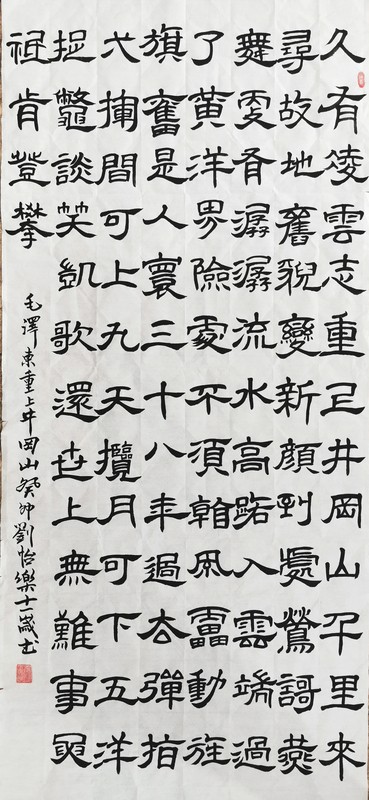 久有淩雲志重上井岡山千里來
尋故地舊貌變新顏到處鶯謌燕
舞更有潺潺流水高路入雲端過
了黃洋界險處不須看風雷動旌
旗奮是人寰三十八年過去彈指
弌揮間可上九天攬月可下五洋
捉鱉談笑凱歌還世上無難事要
祗肯登攀
毛澤東重上井岡山癸卯劉怡樂十一歲書